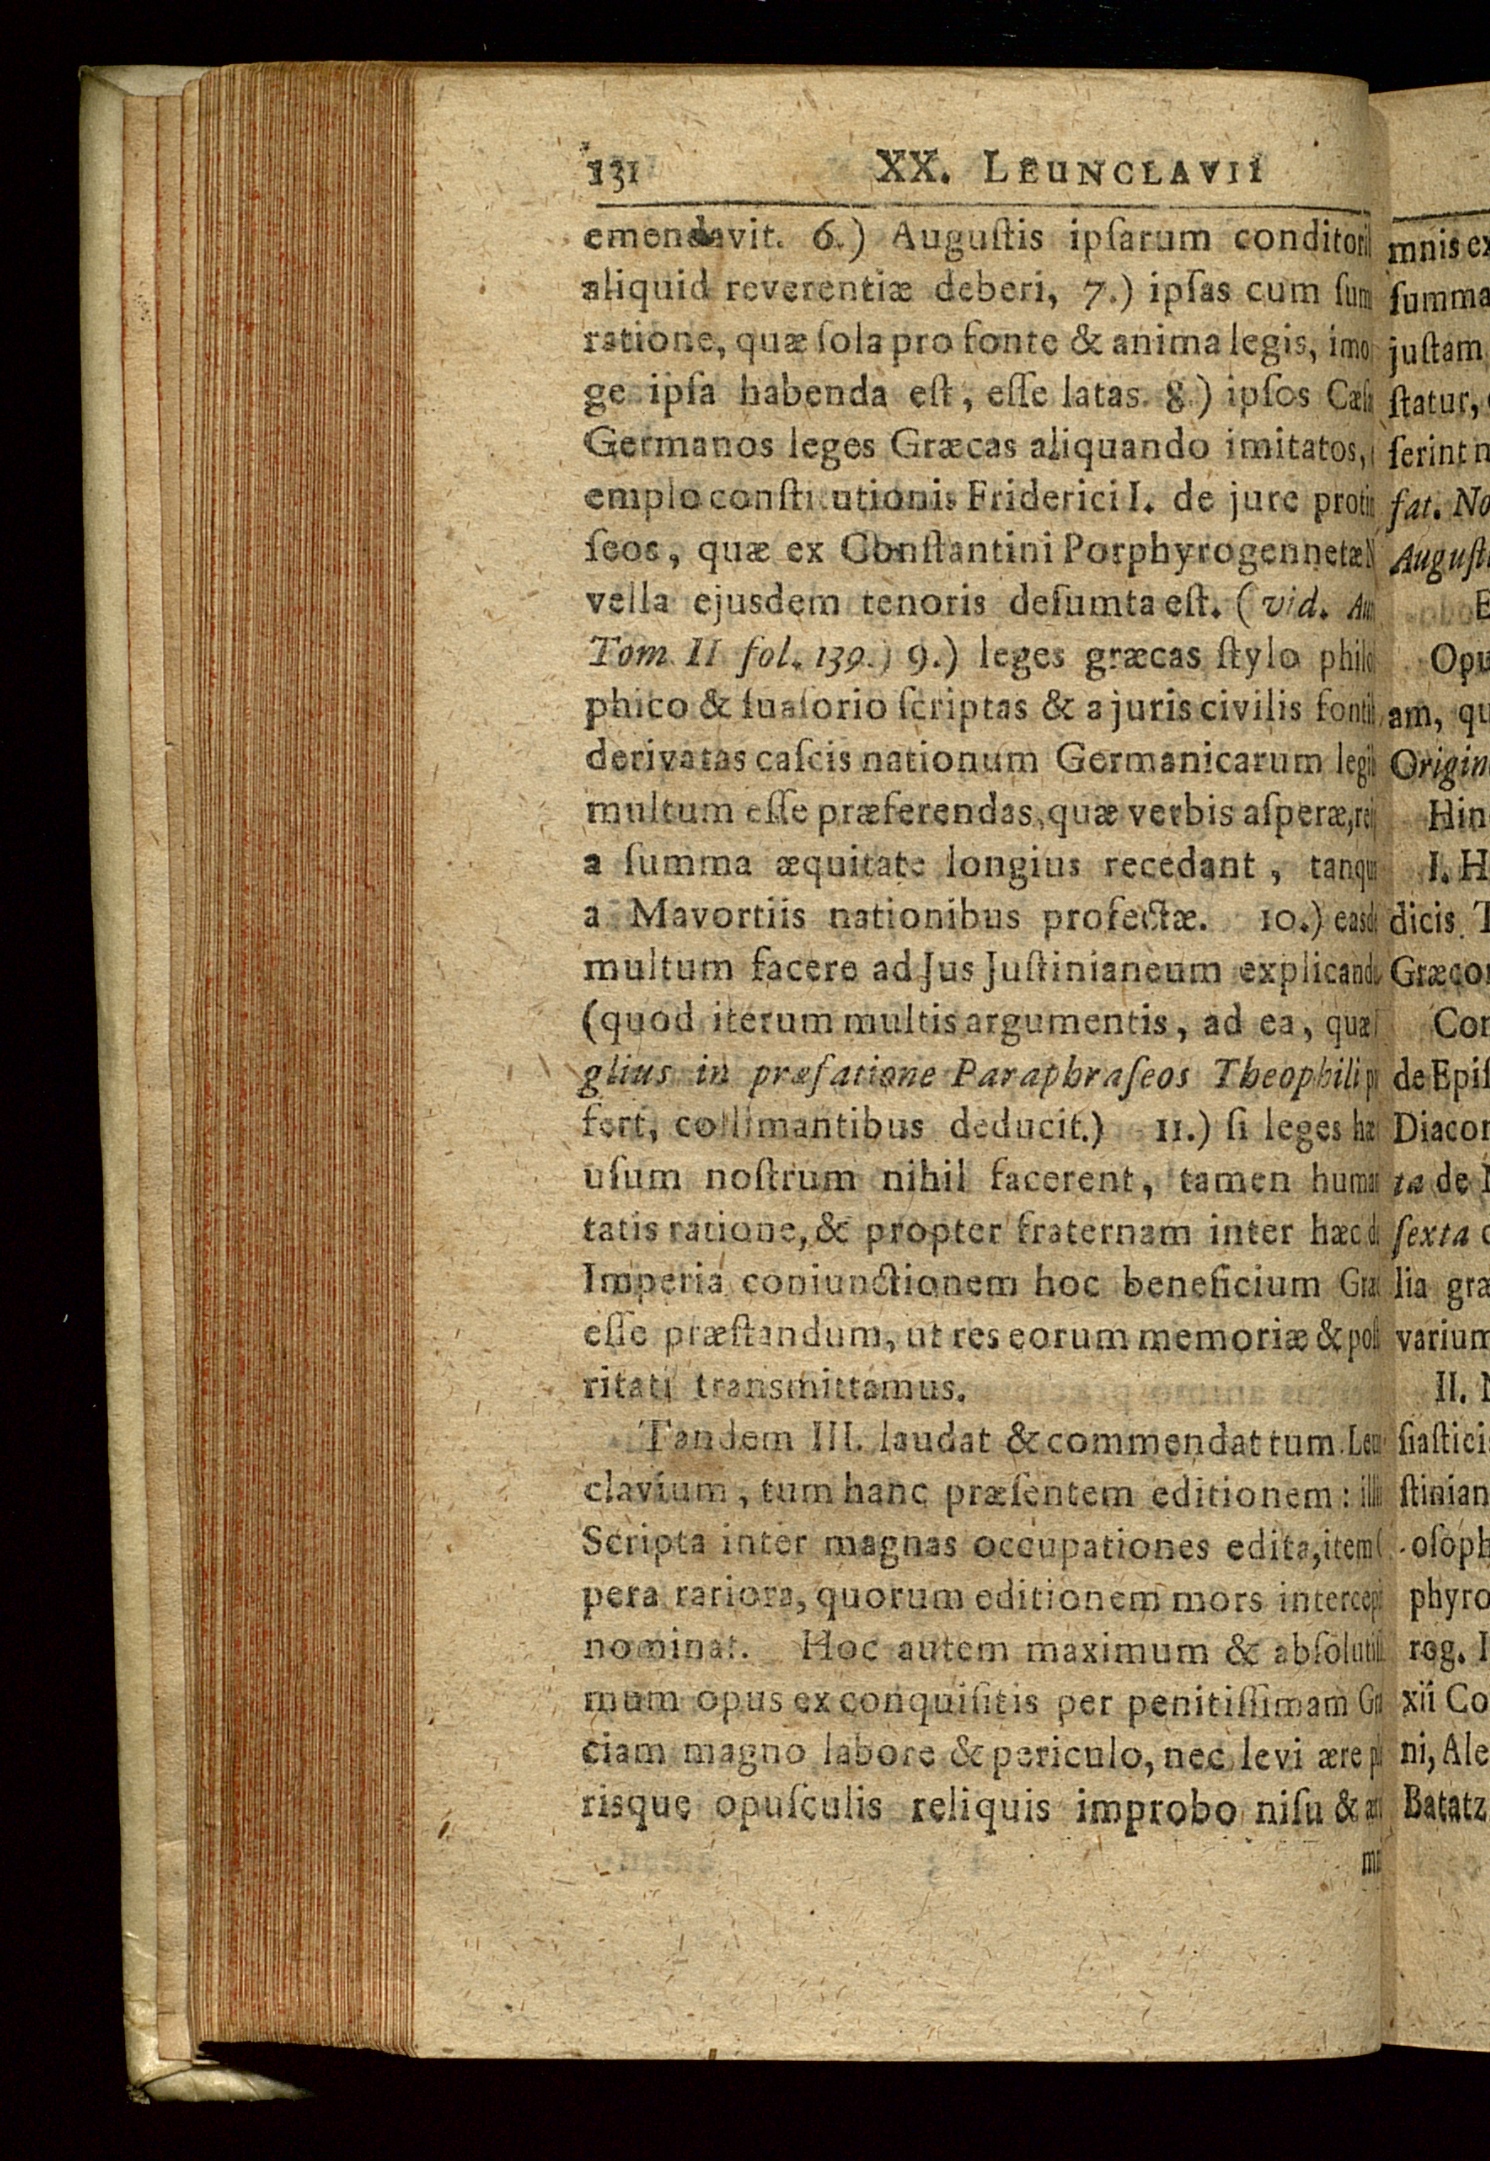 131 XX. LEUNCLAVII
emendavit. 6.) Auguſtis ipſarum
aliquid reverentiæ deberi, 7.) ipſas cum
ratione, quæ ſola pro fonte & anima legis, imo
ge ipſa habenda eſt, eſſe latas. 8.) ipſos
Germanos leges Græcas aliquando imitatos,
emplo conſtitutionis Friderici I. de jure
ſeos, quæ ex Conſtantini Porphyrogennetæ
vella ejusdem tenoris deſumta eſt. (vid.
Tom. II fol. 139.) 9.) leges græcas ſtylo
phico & ſuaſorio ſcriptas & a juris civilis
derivatas caſcis nationum Germanicarum
multum eſſe præferendas, quæ verbis aſperæ,
a ſumma æquitate longius recedant,
a Mavortiis nationibus profectæ. 10.)
multum facere ad Jus Juſtinianeum
(quod iterum multis argumentis, ad ea, quæ
glius in præfatione Paraphraſeos Theophili
fert, collimantibus deducit.) 11.) ſi leges
uſum noſtrum nihil facerent, tamen
tatis ratione, & propter fraternam inter hæc
Imperia coniunctionem hoc beneficium
eſſe præſtandum, ut res eorum memoriæ &
ritati transmittamus.
Tandem III. laudat & commendat tum
clavium, tum hanc præſentem editionem:
Scripta inter magnas occupationes edita, item
pera rariora, quorum editionem mors
nominat. Hoc autem maximum &
mum opus ex conquiſitis per penitiſſimam
ciam magno labore & periculo, nec levi ære
risque opuſculis reliquis improbo niſu &
mnis
ſumma
juſtam
ſtatur,
ſerint
fat.
am,
dicis
de
Diacon
ta de
ſexta
lia
II.
phyro
rog.
xii
ni,
Batatz